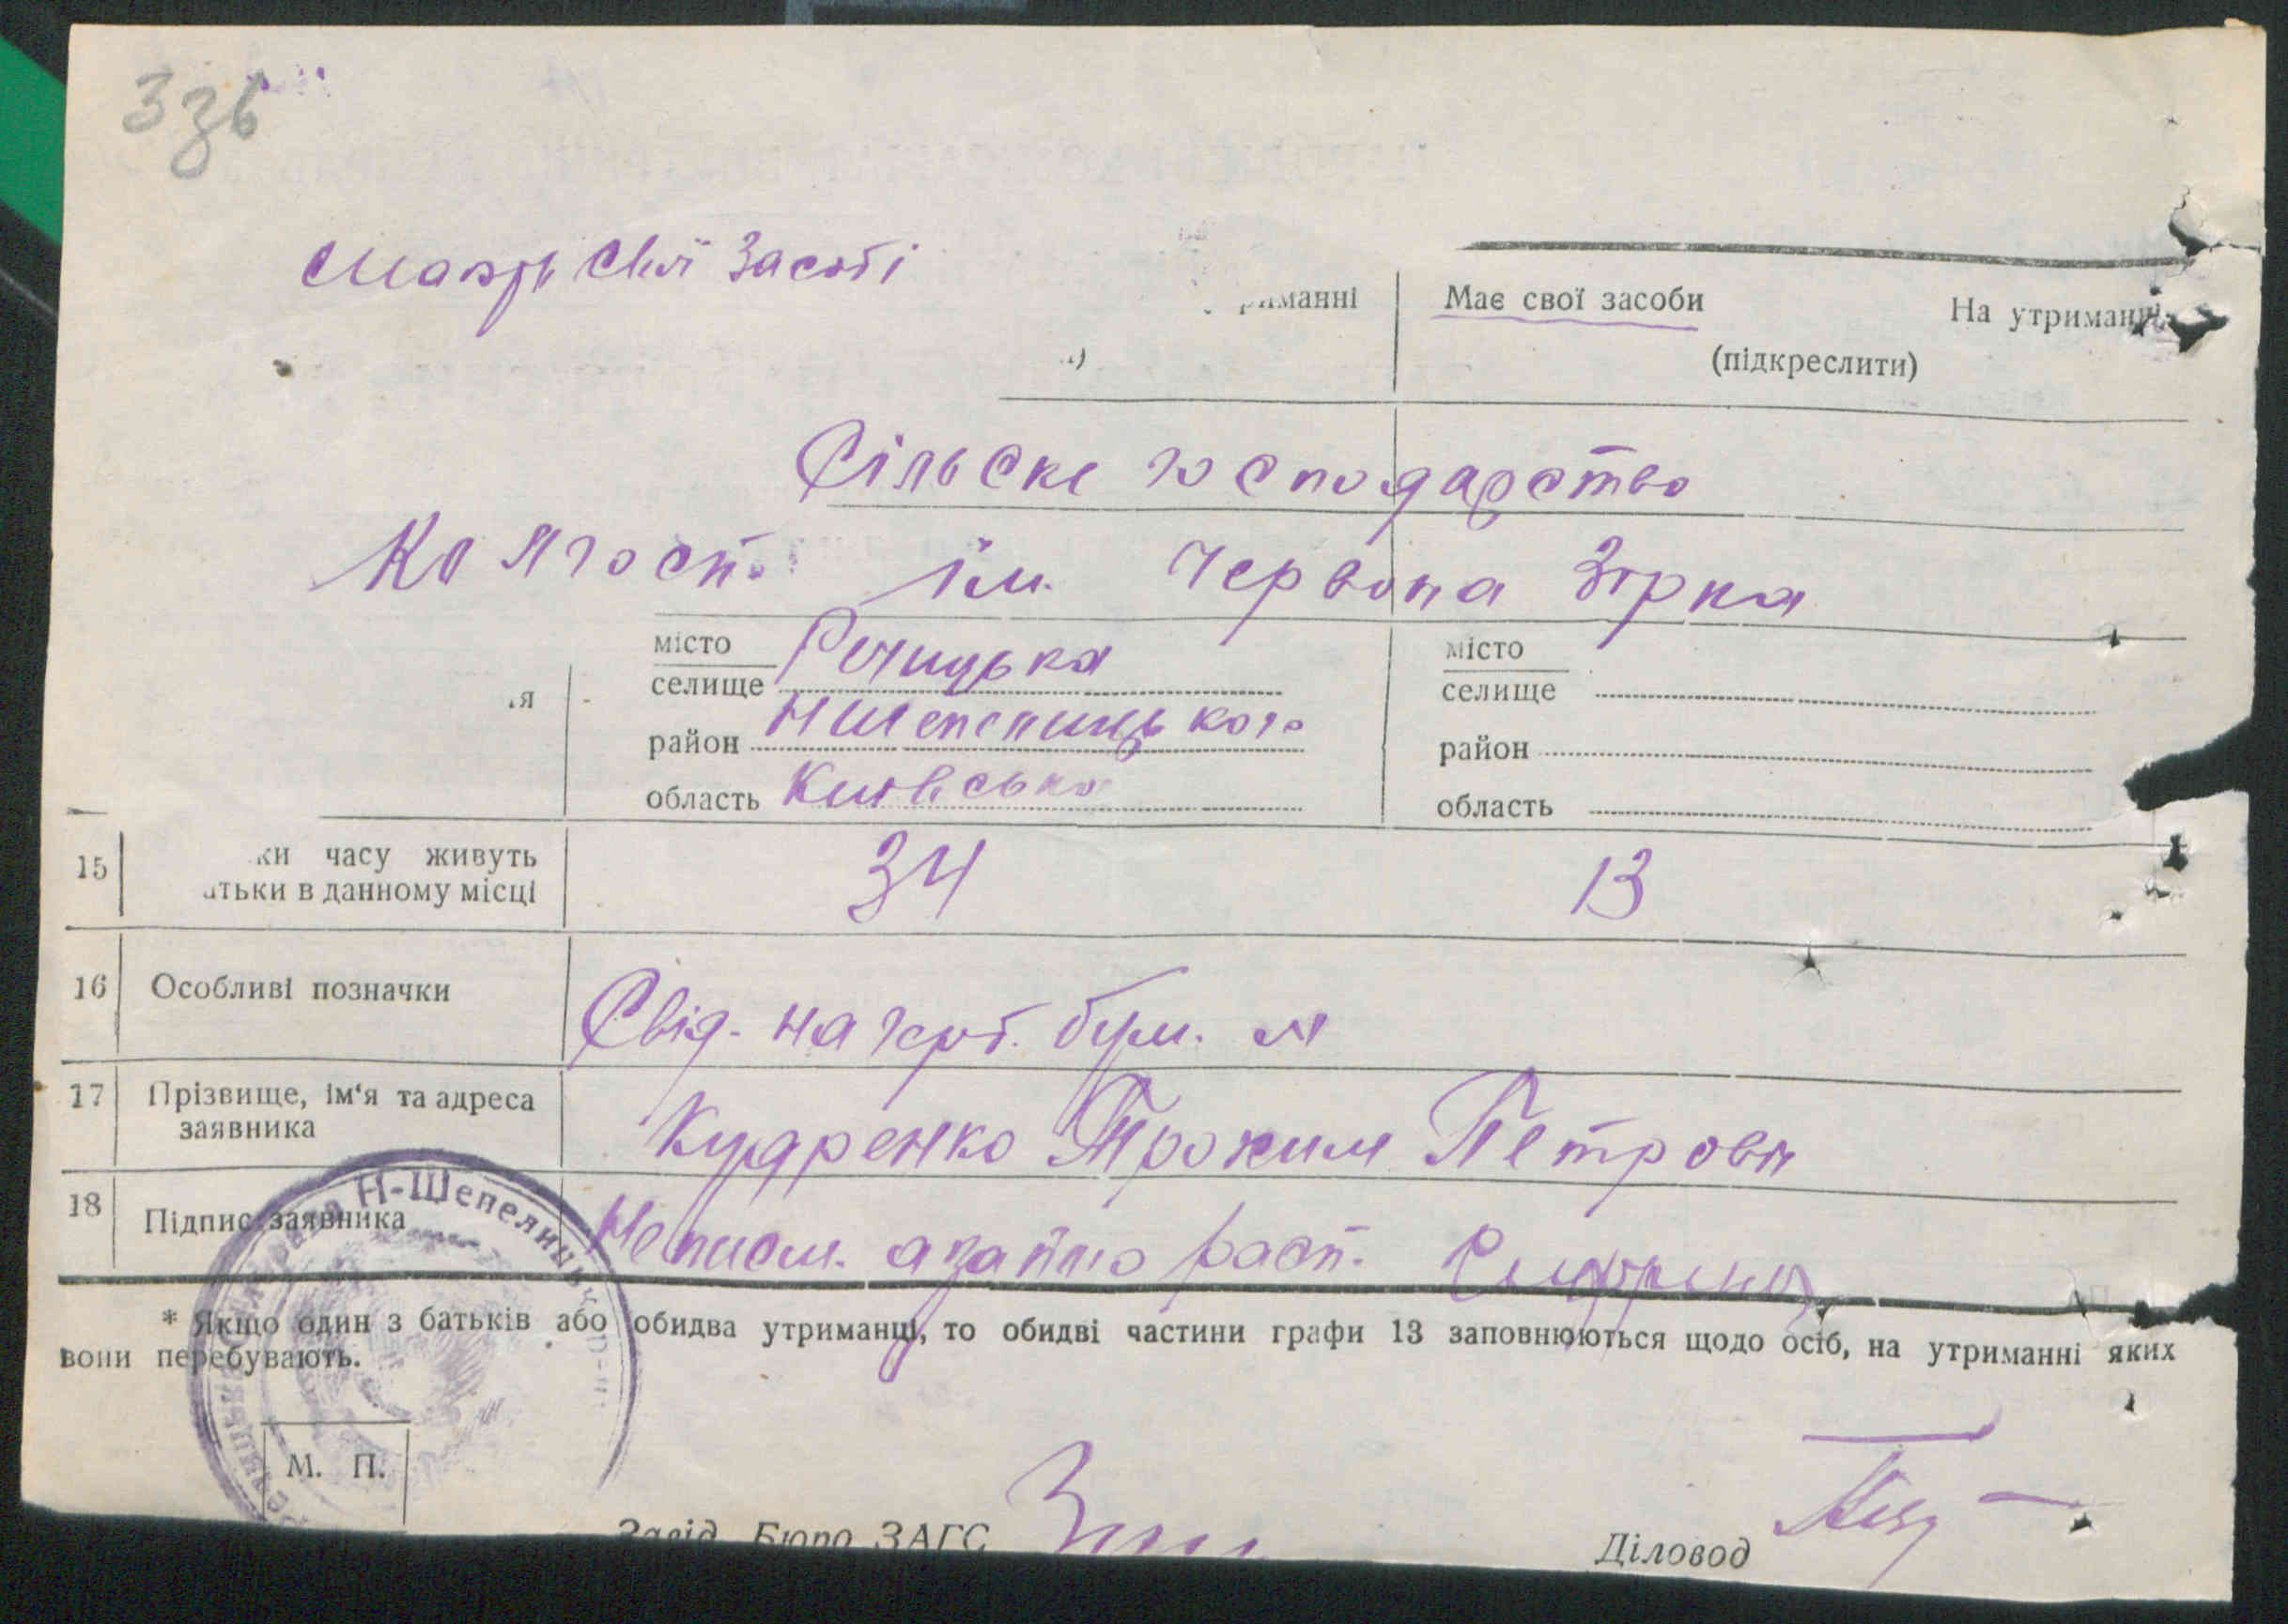 Має свої засоби
На утриманні
(підкреслити)
Сільске господарство
Колгосп. ім. Червона Зірка
місто
селище Речицька
район Н Шепелицького
область Київська
місто
селище
район
область
15 часу живуть
в данному місці
34
13
16 Особливі позначки
Свід. на бум.
17 Прізвище, ім'я та адреса
заявника
Кудренко Трохим Петрови
18 Підпис заявника
Неписм.
Н-Шепелицьк
* Якщо один з батьків або обидва утриманці, то обидві частини графи 13 заповнюються щодо осіб, на утриманні яких
вони перебувають.
М. П.
Завід. Бюро ЗАГС
Діловод